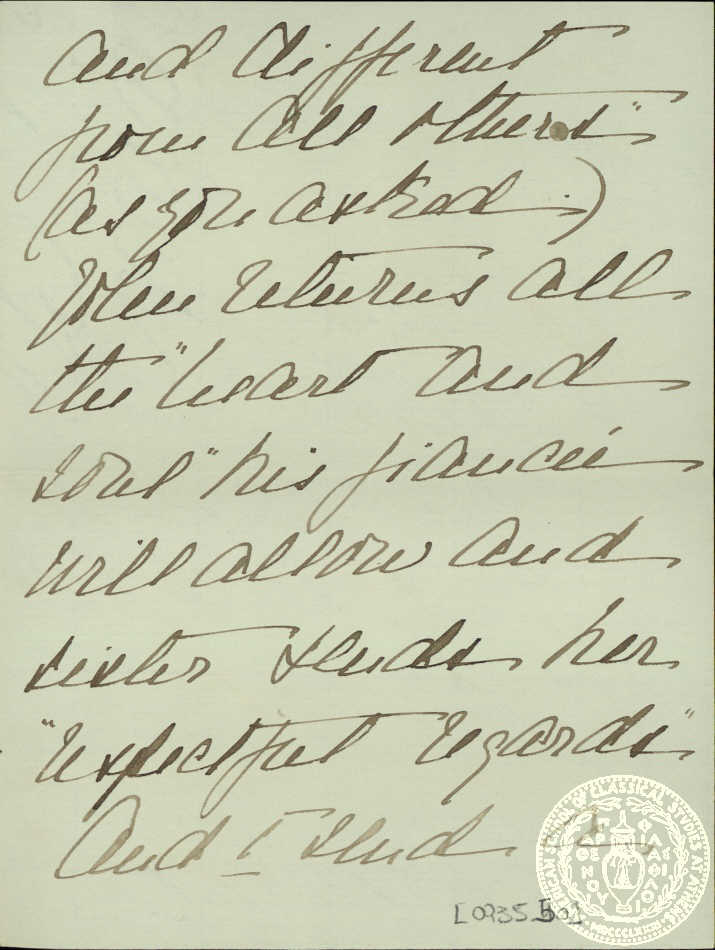 and different
from all others"
(as you asked.)
John returns all
the "heart and
soul" his fiancée
will allow and
sister sends her
"respectful regards"
And I send
[0935_50]
AMERICAN SCHOOL OF CLASSICAL STUDIES AT ATHENS
MDCCCLXXXI